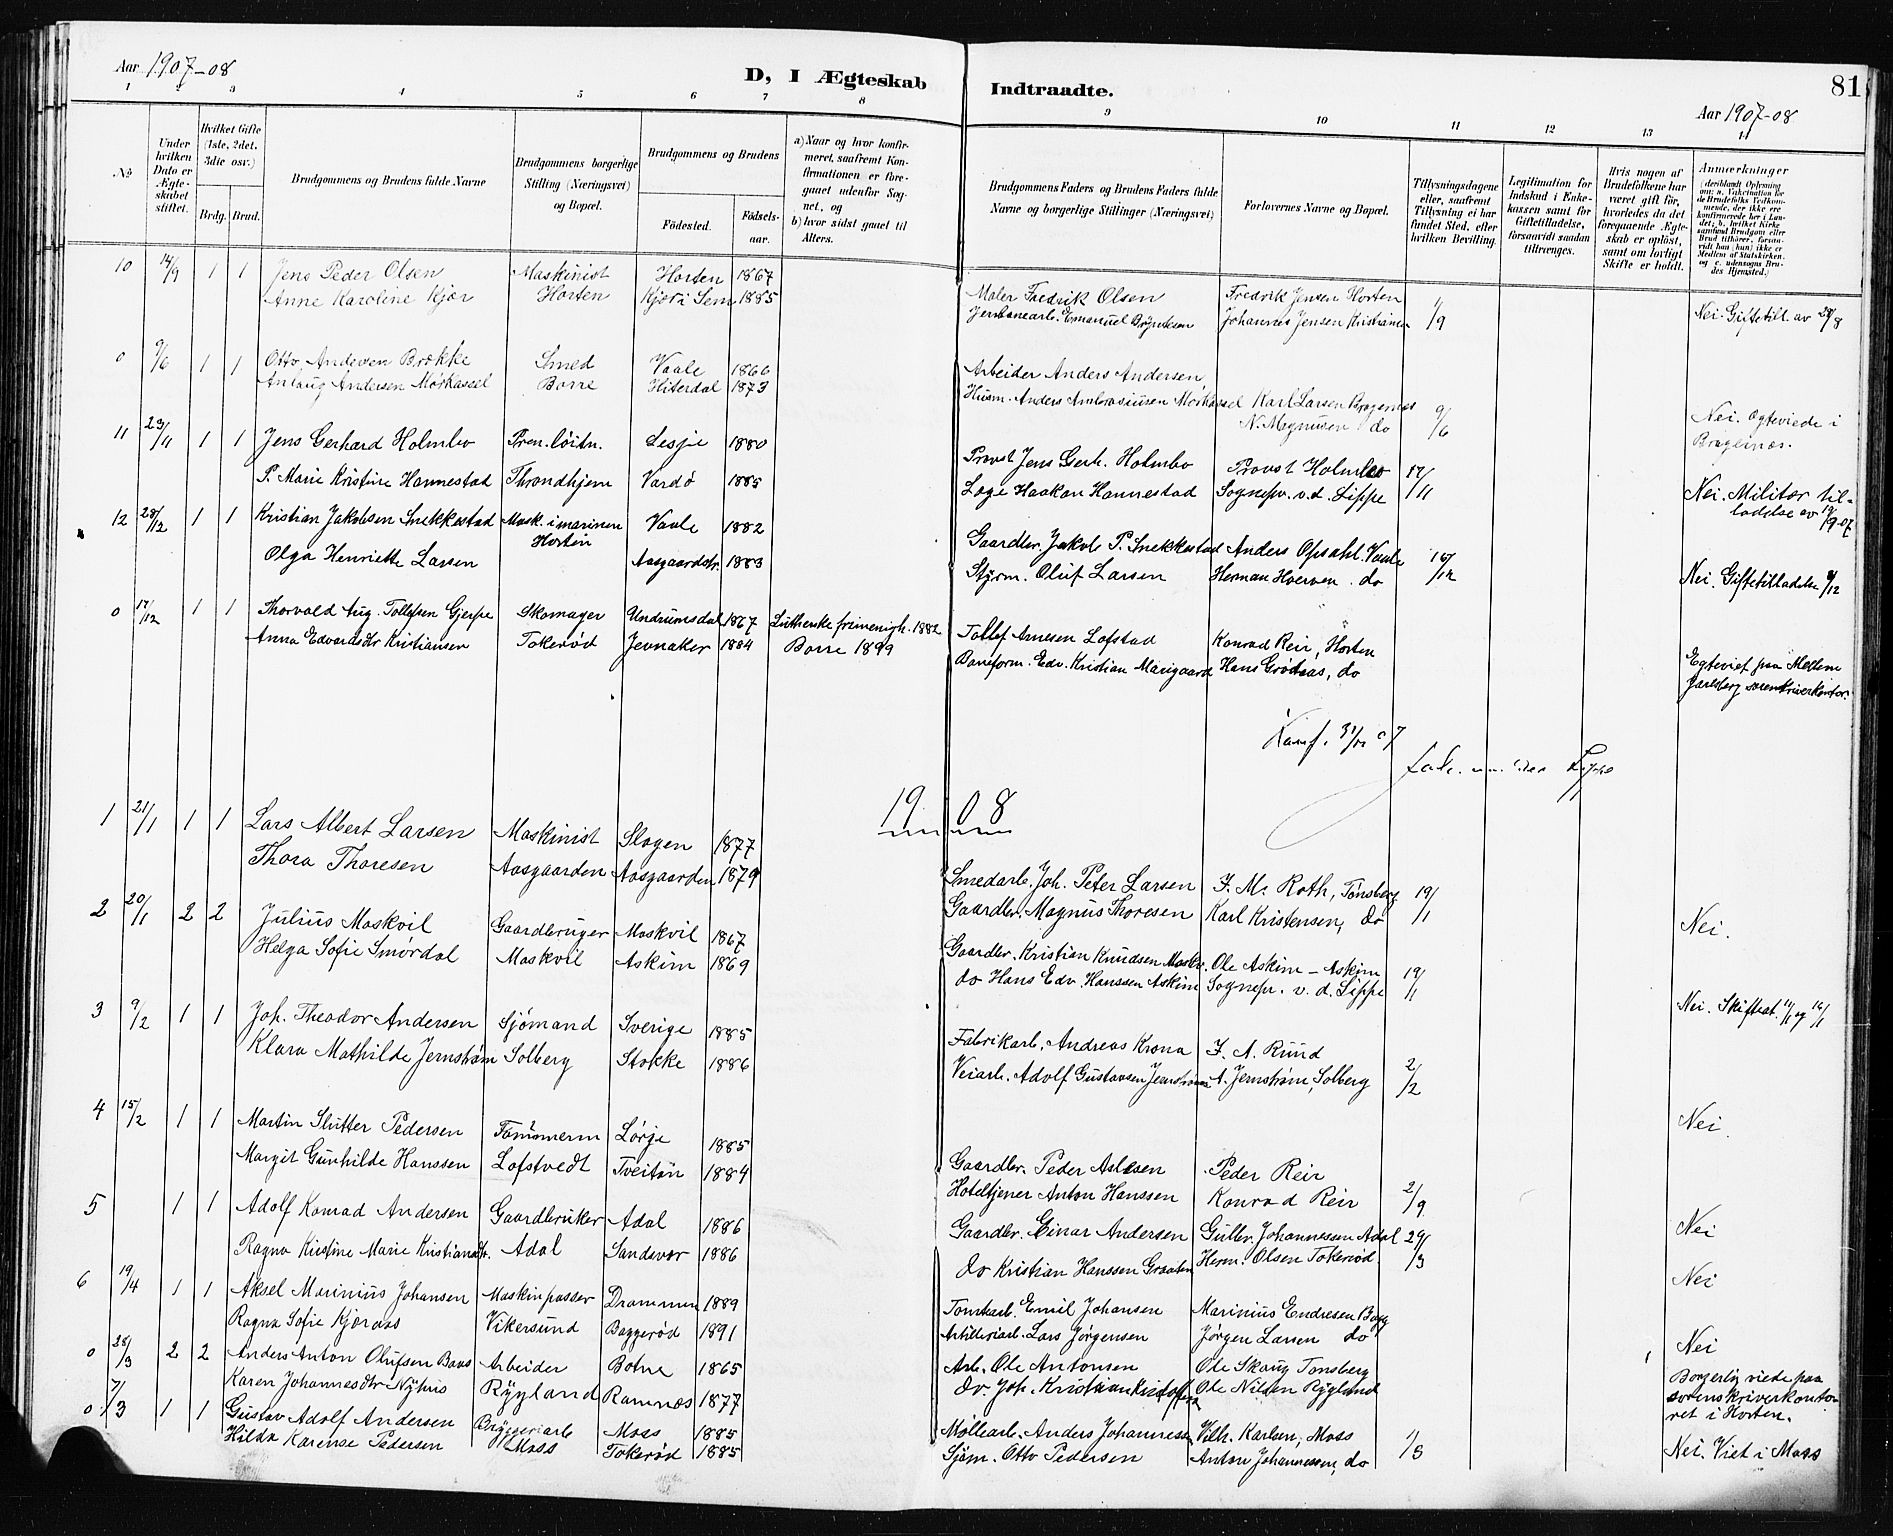 Aar 1907-08
D, I Ægteskab Indtraadte.
81
Aar 1907-08
1 2 3 4 5 6 7 8 9 10 11 12 13 14
No
Under hvilken Dato er Ægteskabet stiftet.
Hvilket Gifte (1ste, 2det, 3die osv.)
Brdg. Brud.
Brudgommens og Brudens fulde Navne
Brudgommens borgerlige Stilling (Næringsvei) og Bopæl.
Brudgommens og Brudens
Fødested.
Fødselsaar.
a) Naar og hvor konfirmeret, saafremt Konfirmationen er foregaaet udenfor Sognet, og
b) hvor sidst gaaet til Alters.
Brudgommens Faders og Brudens Faders fulde Navne og borgerlige Stillinger (Næringsvei)
Forlovernes Navne og Bopæl.
Tillysningsdagene eller, saafremt Tillysning ei har fundet Sted, efter hvilken Bevilling.
Legitimation for Indskud i Enkekassen samt for Giftetilladelse, forsaavidt saadan tiltrænges.
Hvis nogen af Brudefolkene har været gift før, hvorledes da det foregaaende Ægteskab er opløst, samt om lovligt Skifte er holdt.
Anmærkninger
10 14/9 1 1 Jens Peder Olsen Maskinist Horten 1867 Maler Fredrik Olsen Fredrik Jensen Horten 1/9 Nei. Giftetill. av 29/8
Anne Karoline Kjær Horten Kjær i Sem 1885 Jernbanearb. Emanuel Johannes Jensen
0 9/6 1 1 Otto Andersen Brekke Smed Vaale 1866 Arbeider Anders Andersen
Anlaug Andersen Mørkassel Borre Hiterdal 1873 Husm. Anders Ambrosiussen Mørkassel Karl Larsen Bragernæs 9/6 Nei. Egteviede i
N. Magnusen do Bragernæs.
11 23/11 1 1 Jens Gerhard Holmbo Prem. løitn. Lesje 1880 Provst Jens Gerh. Holmbo Provst Holmbo 17/11
P. Marie Kristine Hannestad Throndhjem Vardø 1885 Læge Haakon Hannestad Sognepr. v. d. Lippe Nei. Militær til-
ladelse av 19/9.07
12 28/12 1 1 Kristian Jakobsen Snekkestad Mask. i marinen Vaale 1882 Gaardbr. Jakob P. Snekkestad Anders Opsahl. Vaale 15/12
Horten
Olga Henriette Larsen Aasgaardstr. 1883 Styrm. Oluf Larsen Herman Hverven. do Nei. Giftetilladelse 9/12
0 17/12 1 1 Thorvald Aug. Tollefsen Gjerpe Skomager Undrumsdal 1867 Lutherske frimenigh. 1882 Tollef Arnesen Lofstad Konrad Reir, Horten
Anna Edvardsdtr Kristiansen Tokerød Jevnaker 1884 Borre 1899 Baneform. Edv. Kristian Marigaard Hans Grodaas, do Egteviet paa Mellem
Jarlsberg sorenskriverkontor.
Konf. 31/12 07
Lippe
1908
1 21/1 1 1 Lars Albert Larsen Maskinist Slagen 1877 Smedarb. Joh. Peter Larsen F. M. Roth, Tønsberg 19/1
Thora Thoresen Aasgaarden Aasgaarden 1879 Gaardbr. Magnus Thoresen Karl Kristensen, do Nei.
2 20/1 2 2 Julius Maskvil Gaardbruger Maskvil 1867 Gaardbr. Kristian Knudsen Maskv. Ole Askim - Askim 19/1
Helga Sofie Smørdal Maskvil Askim 1869 do Hans Edv. Hanssen Askim Sognepr. v. d. Lippe Nei. Skifteat. 11/1 og 16/1
3 9/2 1 1 Joh. Theodor Andersen Sjømand Sverige 1885 Fabrikarb. Andreas Krona F. A. Rund 2/2
Klara Mathilde Jernstrøm Solberg Stokke 1886 Veiarb. Adolf Gustavsen Jernstrøm A. Jernstrøm, Solberg Nei.
4 15/2 1 1 Martin Slutter Pedersen Tømmerm Lørje 1885 Gaardbr. Peder Aslesen Peder Reir 2/9
Margit Gunhilde Hanssen Lofstvedt Tveitøn 1884 Hoteltjener Anton Hanssen Konrad Reir Nei
5 1 1 Adolf Konrad Andersen Gaardbruker Adal 1886 Gaardbr. Einar Andersen Gullbr. Johannessen Adal 29/3
Ragna Kristine Marie Kristiansdtr. Adal Sandevær 1886 do Kristian Hanssen Graaten Herm. Olsen Tokerød. Nei
6 19/4 1 1 Aksel Marinius Johansen Maskinpasser Drammen 1889 Tomtearb. Emil Johansen Marinius Endresen Bagg
Ragna Sofie Kjæraas Vikersund Baggerød 1891 Artilleriarb. Lars Jørgensen Jørgen Larsen do Nei
0 28/3 2 2 Anders Anton Olufsen Baas Arbeider Botne 1865 Arb. Ole Antonsen Ole Skaug Tønsberg Borgerlig viede paa
Karen Johannesdtr Nyhus Rygland Ramnæs 1877 do Joh. Kristian Kristoffersen Ole Nilsen Rygland sorenskriverkonto-
ret i Horten.
0 7/3 1 1 Gustav Adolf Andersen Bryggeriarb Moss 1885 Møllearb. Anders Johannessen Vilh. Karlsen, Moss 1/3
Hilda Karense Pedersen Moss Tokerød 1885 Sjøm. Otto Pedersen Anton Johannessen, do Nei. Viet i Moss